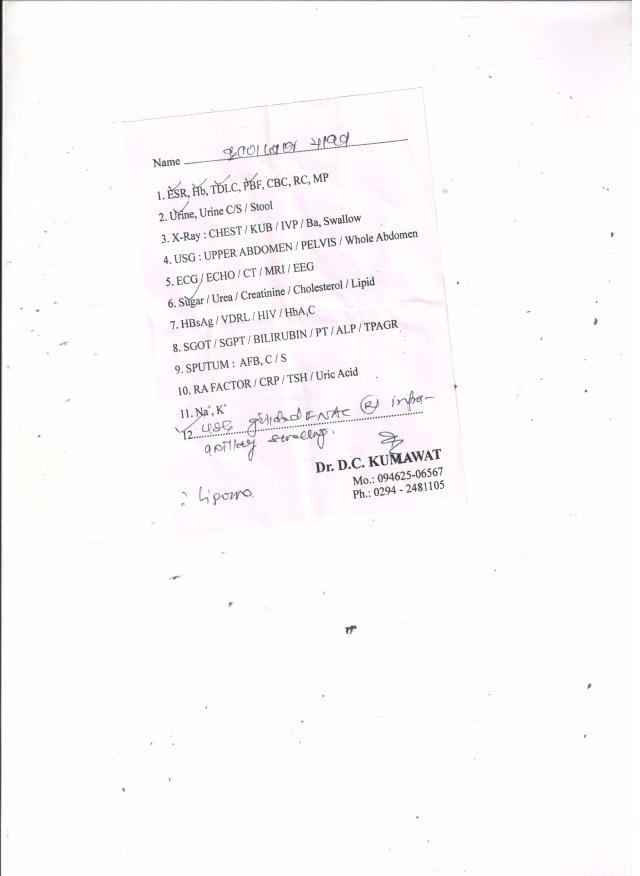 Name
1. ESR, Hb, TDLC, PBF, CBC, RC, MP
2. Urine, Urine C/S / Stool
3. X-Ray : CHEST / KUB / IVP / Ba, Swallow
4. USG : UPPER ABDOMEN / PELVIS / Whole Abdomen
5. ECG / ECHO / CT / MRI / EEG
6. Sugar / Urea / Creatinine / Cholesterol / Lipid
7. HBsAg / VDRL / HIV / HbA,C
8. SGOT / SGPT / BILIRUBIN / PT / ALP / TPAGR
9. SPUTUM : AFB, C / S
10. RA FACTOR / CRP / TSH / Uric Acid
11. Na⁺, K⁺
12. USG guided FNAC (R) infra-
axillary swelling.
Dr. D.C. KUMAWAT
Mo.: 094625-06567
Ph.: 0294 - 2481105
: Lipoma